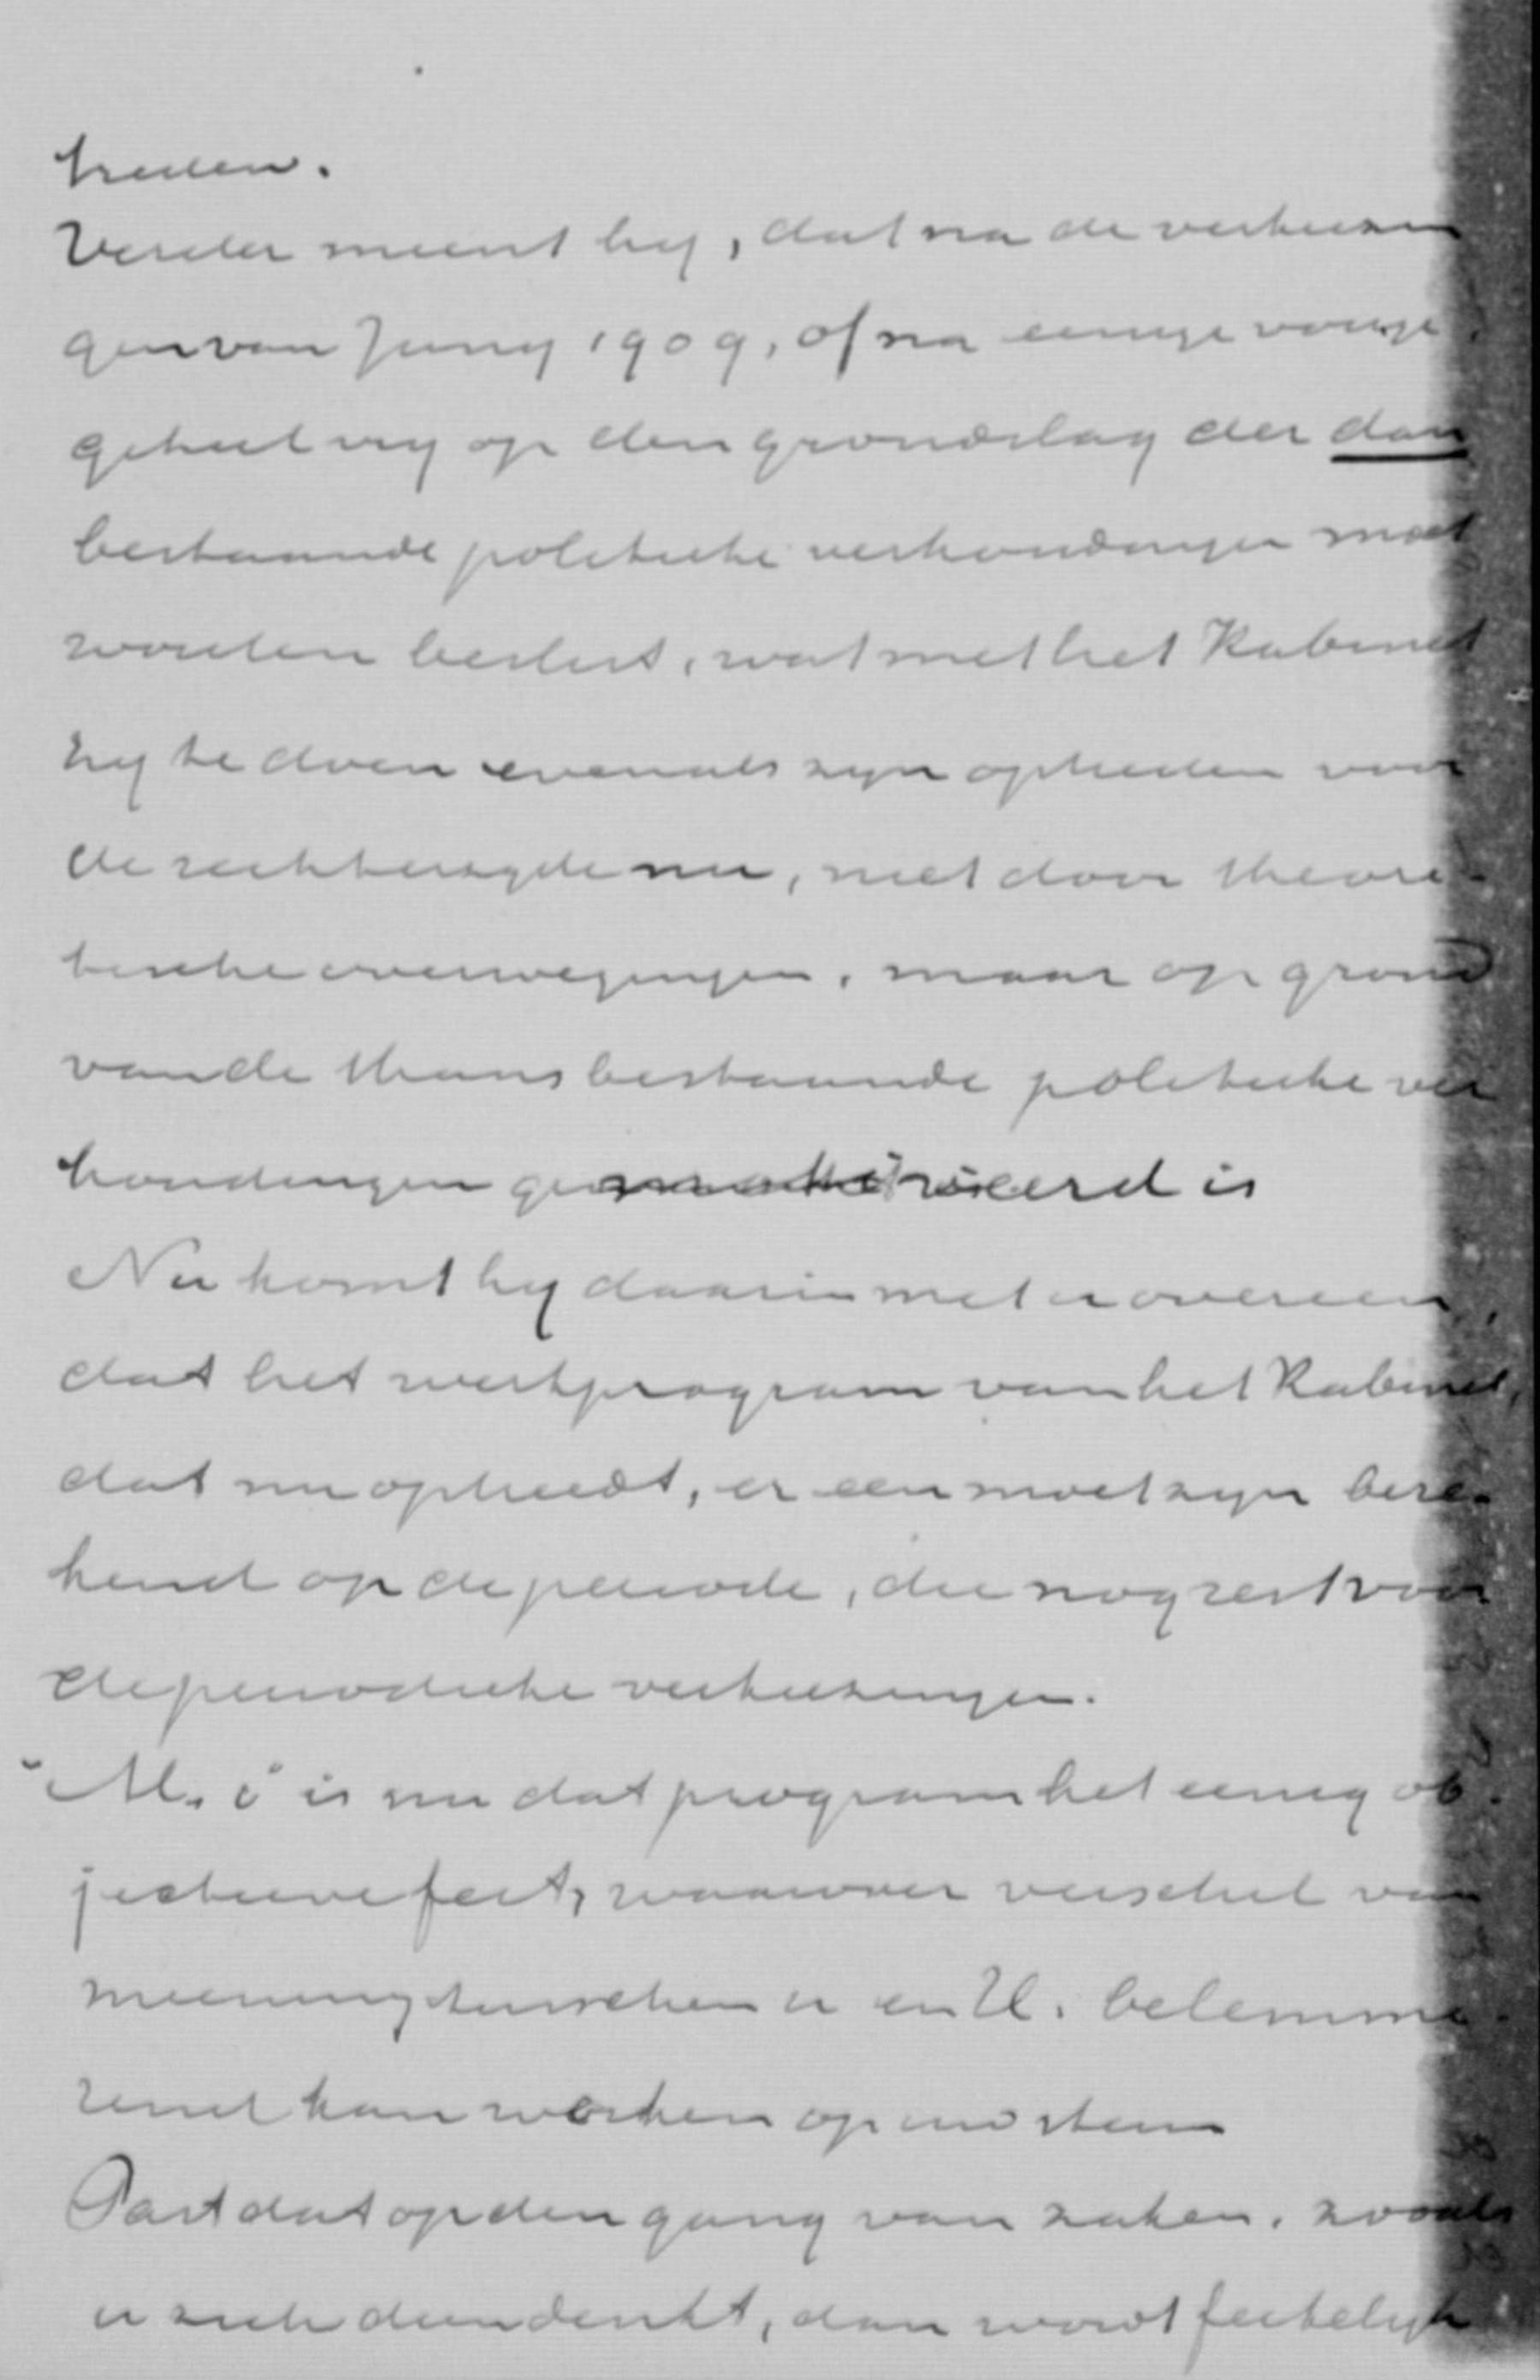 treden.
Verder meent hy, dat na de verkiezin
gen van Juny 1909, of na eenige vroege
geheel vry op den grondslag der dan
bestaande politieke verhoudingen moet
worden beslist, wat met het Kabinet
hy te doen evenals zyn optreden voor
de rechterzyde nu, niet door theore-
tische overwegingen, maar op grond
van de thans bestaande politieke ver
houdingen gemotiveerd is
Nu komt hy daarin met u overeen,
dat het werkprogram van het Kabinet,
dat nu optreedt, er een moet zyn bere-
kend op de periode, die nog rest voor
de periodieke verkiezingen.
"M. i" is nu dat program het eenig ob-
jectieve feit, waarover verschil van
meening tusschen u en U. belemme-
rend kan werken op uw
Past dat op den gang van zaken, zooals
u zich dien denkt, dan wordt feitelyk